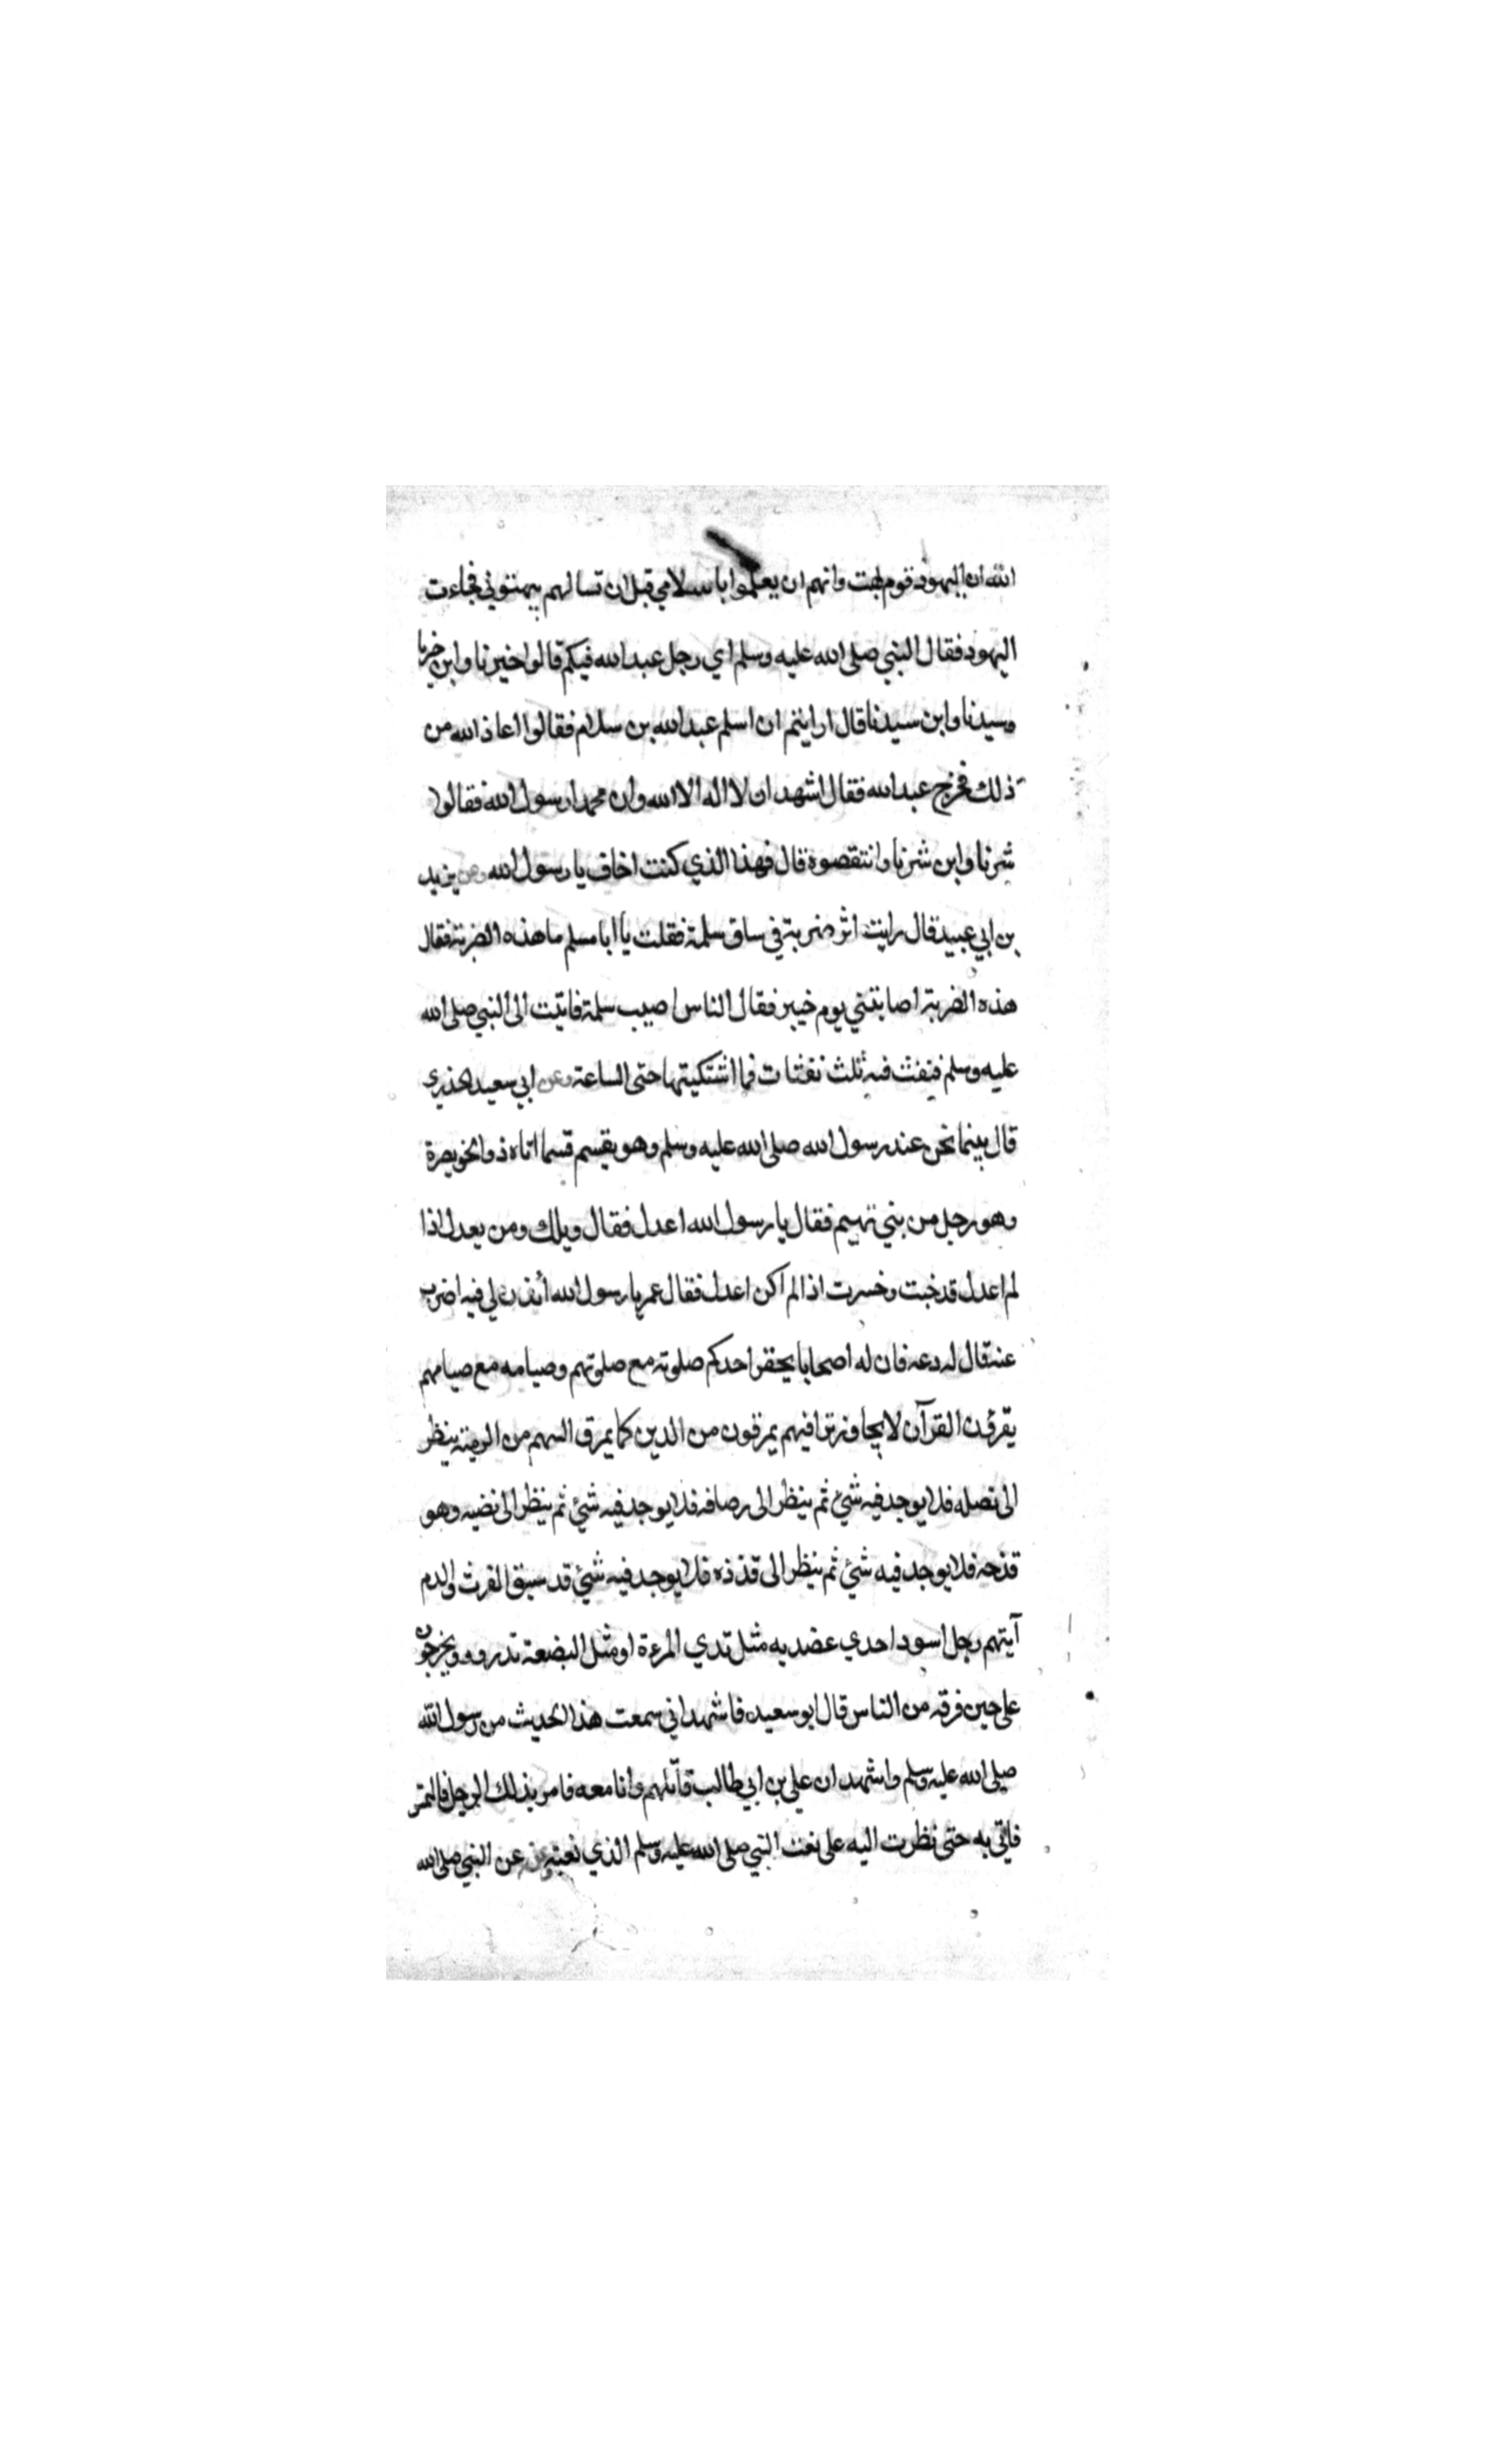 الله ان اليهود قوم بهت وانهم ان يعلموا باسلامي قبل ان تسالهم يبهتوني فجاءت
اليهود فقال النبي صلى الله عليه وسلم اي رجل عبدالله فيكم قالوا خيرنا وابن خيرنا
وسيدنا وابن سيدنا قال ارايتم ان اسلم عبدالله بن سلام فقالوا اعاذ الله من
ذلك فخرج عبدالله فقال اشهد ان لا اله الا الله وان محمدا رسول الله فقالوا
شرنا وابن شرنا وانتقصوه قال فهذا الذي كنت اخاف يا رسول الله وعن يزيد
بن ابي عبيد قال رايت اثر ضربة في ساق سلمة فقلت يا ابا مسلم ما هذه الضربة فقال
هذه الضربة اصابتني يوم خيبر فقال الناس اصيب سلمة فاتيت الى النبي صلى الله
عليه وسلم فنفث فيه ثلث نفثات فما اشتكيتها حتى الساعة وعن ابي سعيد الخدري
قال بينما نحن عند رسول الله صلى الله عليه وسلم وهو يقسم قسما اتاه ذو الخويصرة
وهو رجل من بني تميم فقال يا رسول الله اعدل فقال ويلك ومن يعدل اذا
لم اعدل قد خبت وخسرت اذا لم اكن اعدل فقال عمر يا رسول الله ائذن لي فيه اضرب
عنقه قال له دعه فان له اصحابا يحقر احدكم صلوته مع صلوتهم وصيامه مع صيامهم
يقرؤن القرآن لا يجاوز تراقيهم يمرقون من الدين كما يمرق السهم من الرمية ينظر
الى نصله فلا يوجد فيه شئ ثم ينظر الى رصافه فلا يوجد فيه شئ ثم ينظر الى نضيه وهو
قدحه فلا يوجد فيه شئ ثم ينظر الى قذذه فلا يوجد فيه شئ قد سبق الفرث والدم
آيتهم رجل اسود احدي عضديه مثل ثدي المرءة او مثل البضعة تدردر ويخرجون
على حين فرقه من الناس قال ابو سعيد فاشهد اني سمعت هذا الحديث من رسول الله
صلى الله عليه وسلم واشهد ان علي بن ابي طالب قاتلهم وانا معه فامر بذلك الرجل فالتمس
فاتي به حتى نظرت اليه على نعت النبي صلى الله عليه وسلم الذي نعته عن النبي صلى الله